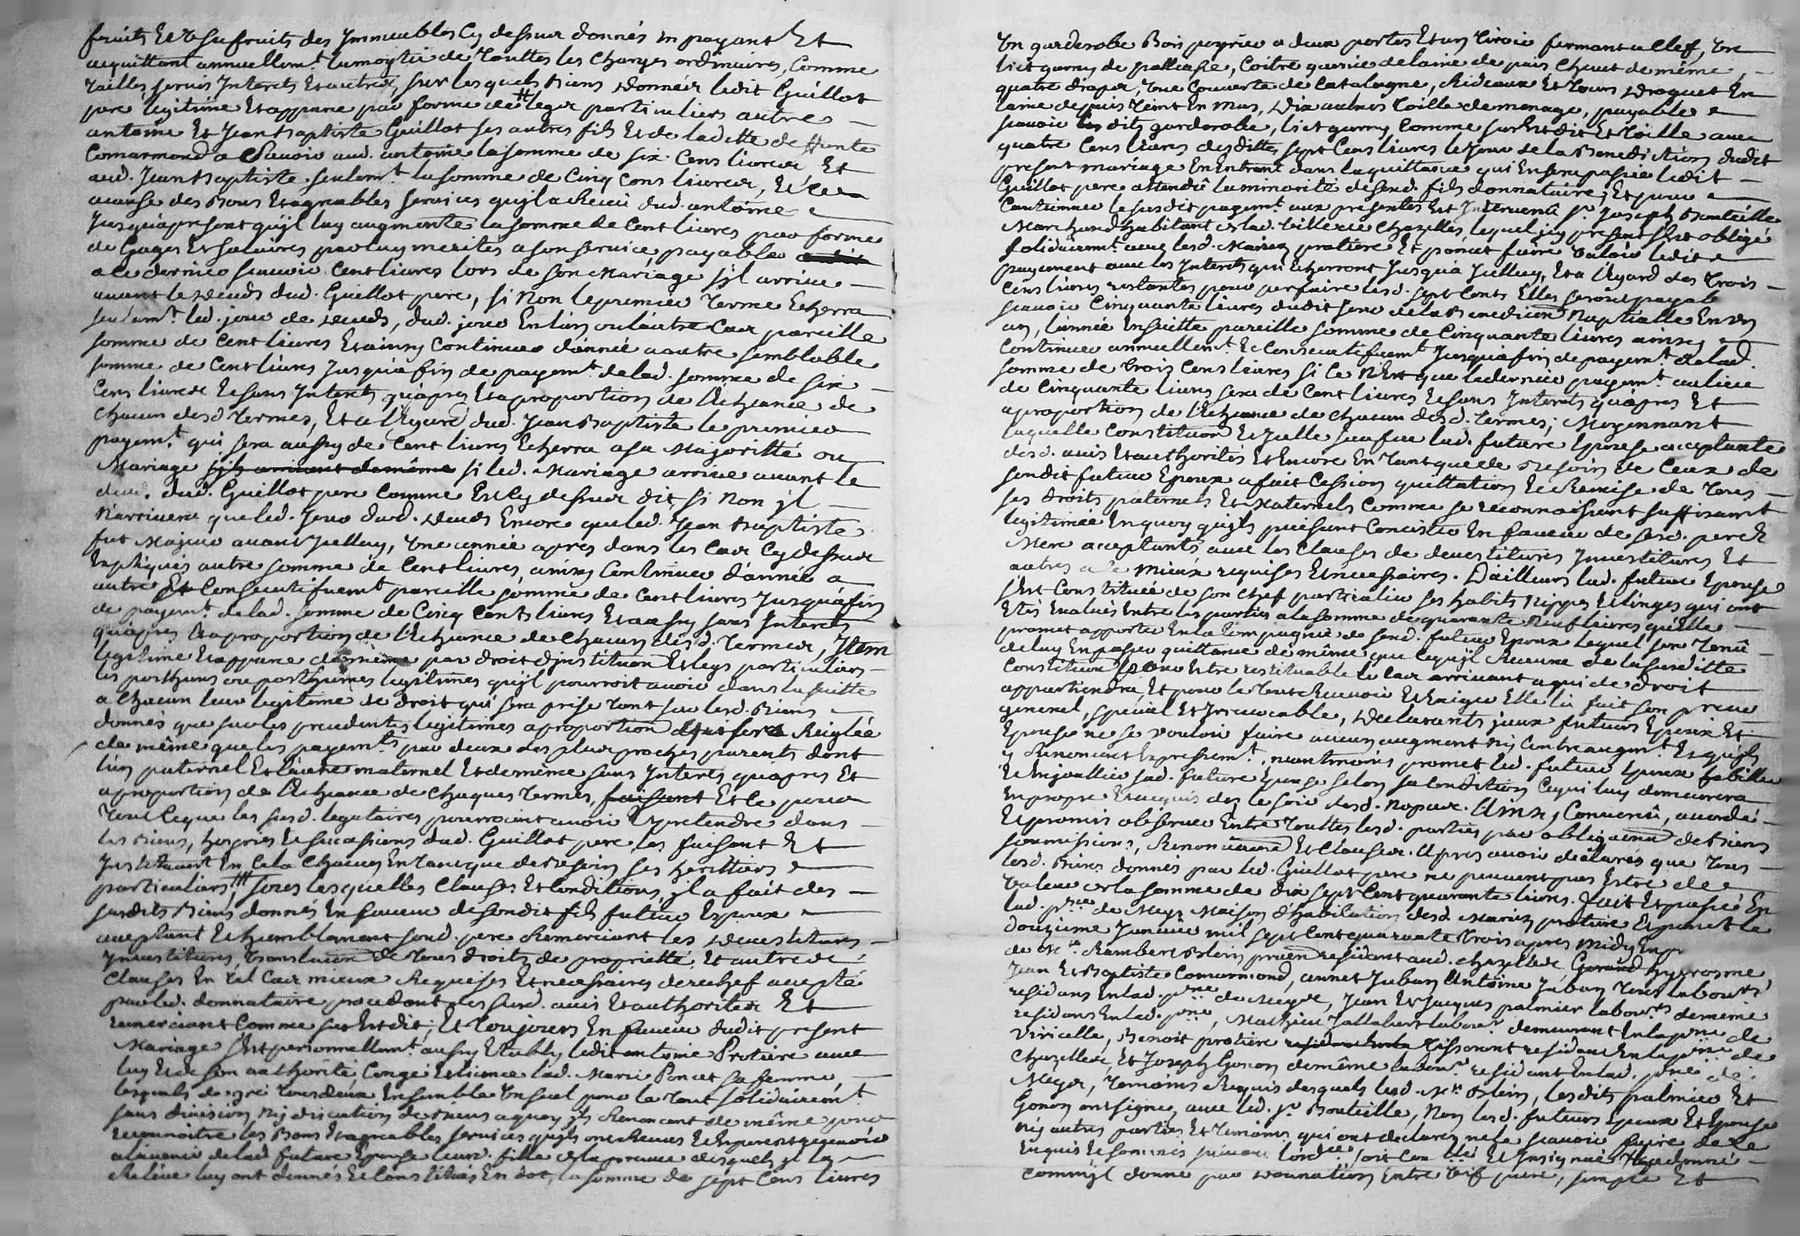 fruits et usufruits des immeubles cy dessus donnés en payant et
acquittant annuellemt. la moytié de touttes les charges ordinaires, comme
tailles servis interets et autres, sur lesquels biens donnés ledit Guillot
pere legitime et appane par forme de legs particuliers autres
antoine et Jean Baptiste Guillot ses autres fils et de laditte deffunte
Comarmond a Scavoir aud. antoine la somme de six cens livres et
aud. Jean Baptiste seulemt. la somme de cinq cens livres, et ce
a cause des bons et agreables services qu'jl a Receu dud. antoine
jusqu'a present qu'jl luy augmente la somme de cent livres par forme
de Gages et salaires par luy merités a son service, payables
a ce dernier scavoir cent livres lors de son mariage s'jl arrive
avant le deceds dud. Guillot pere, si non le premier terme echerra
seulemt. led. jour de deceds, dud. jour en un ou l'autre cas pareille
somme de cent livres et ainsy continuer d'année a autre semblable
somme de cent livres jusqu'a fin de payemt. de lad. somme de six
cens livres et sans Interets qu'apres et a proportion de l'echeance de
chacun desd. termes, et a l'egard dud. Jean Baptiste le premier
payemt. qui sera aussy de cent livres echerra a sa majorité ou
mariage si led. mariage arrive avant le
deced. dud. Guillot pere comme est cy dessus dit, si non jl
n'arrivera que led. jour dud. deceds encore que led. Jean Baptiste
fut majeur avant jcelluy, une année apres dans les cas cy dessus
expliqués autre somme de cent livres, ainsy continuer d'année a
autre et consecutifvemt. pareille somme de cent livres jusqu'a fin
de payemt. de lad. somme de cinq cens livres et aussy sans interets
qu'apres et a proportion de l'echeance de chacun desd. termes, Item
legitime et appane de même par droit d'jnstitution et legs particuliers
les posthums ou posthumes legitimes qu'jl pourroit avoir dans la suitte
a chacun leur legitime de droit qui sera prise tant sur lesd. biens
donnés que sur les precedents legitimes a proportion qui sera reiglée
de même que les payemts. par deux des plus proches parents dont
l'un paternel et l'autre maternel et de même sans Interets qu'apres et
a proportion de l'echeance de chaques termes, et ce pour
tout ce que les susd. legataires pourroient avoir et pretendre dans
les biens, hoiries et successions dud. Guillot pere les faisant et
jnstituant en cela chacun en tant que de besoin ses heritiers
particuliers, sous lesquelles clauses et conditions jl a fait des
susdits biens donnés en faveur de sondit fils futur Espoux
acceptant et humblement sond. pere remerciant les devestitures
jnvestitures, translation de tous droits de proprietté, et autre de
clauses en tel cas mieux requises et necessaires derechef accepté
par led. donnataire procedant des susd. avis et authorités et
remerciant comme sus est dit; Et toujours en faveur dudit present
mariage s'est personnellemt. aussy etably ledit antoine Protiere avec
luy et de son authorité, congé et licence lad. Marie Poncet sa femme,
lesquels de gré tous deux ensemble un seul pour le tout solidairemt.
sans division ny discution de biens a quoy jls renoncent de même pour
reconnoitre les bons et agreables services qu'jls ont receus et esperent recevoir
a l'avenir de lad. future Epouse leur fille de la preuve desquels jl la
releve luy ont donnés et constitués en dot, la somme de sept cens livres
un garderobe bois peyrier a deux portes et un tiroir fermant a clef, un
lict garny de paillasse, coitre garnie de laine de pais chevet de même,
quatre draps, une couverte de catalogne, rideaux et tours droguet en
laine de pais teint en mus, dix aulnes toille de menage, payable
scavoir lesdits garderobe, lict garny comme sus est dit et toille avec
quatre cens livres desdittes sept cens livres le jour de la benediction dudit
present mariage en entrant dans la quittance qui en sera passée ledit
Guillot pere attendu la minorité desond. fils donnataire; Et pour
cautionner le susdit payemt. aux presentes est jntervenu sr. Joseph Bouteille
marchand habitant de lad. ville de Chazelles, lequel jcy present s'est obligé
solidairemt. avec lesd. mariez protiere et poncet faire valoir ledit
payement avec les Interets qui echerront jusqu'a jcelluy, et a l'egard des trois
cens livres restantes pour parfaire lesd. sept cents elles seront payab.
scavoir cinquante livres dudit jour de la benediction Nuptialle en un
an, l'année ensuitte pareille somme de cinquante livres ainsy
continuer annuellemt. et consecutifvemt. jusqu'a fin de payemt. de lad.
somme de trois cens livres si ce n'est que le dernier payemt. au lieu
de cinquante livres sera de cent livres et sans Interets qu'apres et
a proportion de l'echeance de chacun desd. termes; Moyennant
laquelle constitution et jcelle sus fue lad. future Epouse acceptante
desd. avis et authorités et encore en tant que de besoin de ceux de
sondit futur Epoux a fait cession quittation et remise de tous
ses droits paternels et maternels comme se reconnoissant suffisamt.
legitimée en quoy qu'jls puissent concister en faveur de sesd. pere et
mere acceptants avec les clauses de devestitures jnvestitures et
autres a ce mieux requises et necessaires. D'ailleurs lad. future Epouse
s'est constituée de son chef particulier ses habits nippes et linges qui ont
etés evalués entre les parties a la somme de quarante neuf livres qu'elle
promet apporter en la compagnie de sond. futur Epoux lequel sera tenu
de luy en passer quittance de même que ce qu'jl recevra de la susditte
constitution pour estre restituable le cas arrivant a qui de droit
appartiendra, et pour le tout recevoir et exiger elle la fait son procur
general, special et jrrevocable, declarants jceux futurs Epoux et
Epouse ne se vouloir faire aucun augment ny contreaugmt. et qu'jls
y renoncent expressemt. neantmoins promet led. futur Epoux habiller
et enjoailler sad. future Epouse selon sa condition ce qui luy demeurera
en propre et acquis dez le soir desd. Nopces. Ainsy, convenu, accordé
et promis observer entre touttes lesd. parties par obligation de biens
soumissions, renonciations et clauses. Apres avoir declarés que tous
lesd. biens donnés par led. Guillot pere ne peuvent pas estre de
valeur de la somme de dix sept cent quarante livres. Fait et passé en
lad. pnsse. de Meys maison d'habitation desd. mariez protiere et poncet le
douzieme janvier mil sept cent quarante trois apres midy En pr
de Me. Rambert Blein praen resident aud. chazelles Hyerosme
Jean et Baptiste Comarmond, annet Juban Antoine Juban tous labours.
residans en lad. psse. de Meys, Jean et Jacques palmier labours. de même
residans en lad. psse, Mathieu Jallabert labour. demeurant en la psse de
Viricelle, Benoit protiere tisserant residant en la psse de
Chazelles, et Joseph Gonon de même labour. residant en lad. psse de
Meys, temoins requis desquels led. Me. Blein, lesdits palmier et
Gonon ont signés, avec led. sr. Bouteille, non lesd. futurs Epoux et Epouse
ny autres parties et temoins qui ont declarés ne le scavoir faire de ce
enquis et sommés suivant l'ordce. soit con.llé et jnsignué donné
comm'jl donne par donnation entre vif pure, simple et